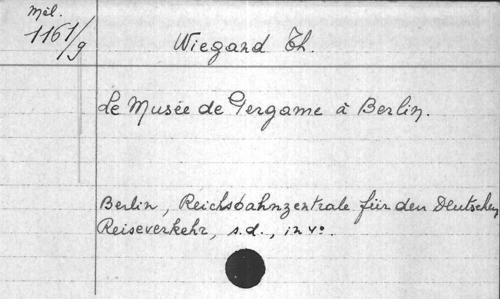 Mél.
1161/9
Wiegard Th.
Le Musée de Pergame à Berlin.
Berlin, Reichsbahnzentrale für den Deutschen
Reiseverkehr, s.d., in v°.